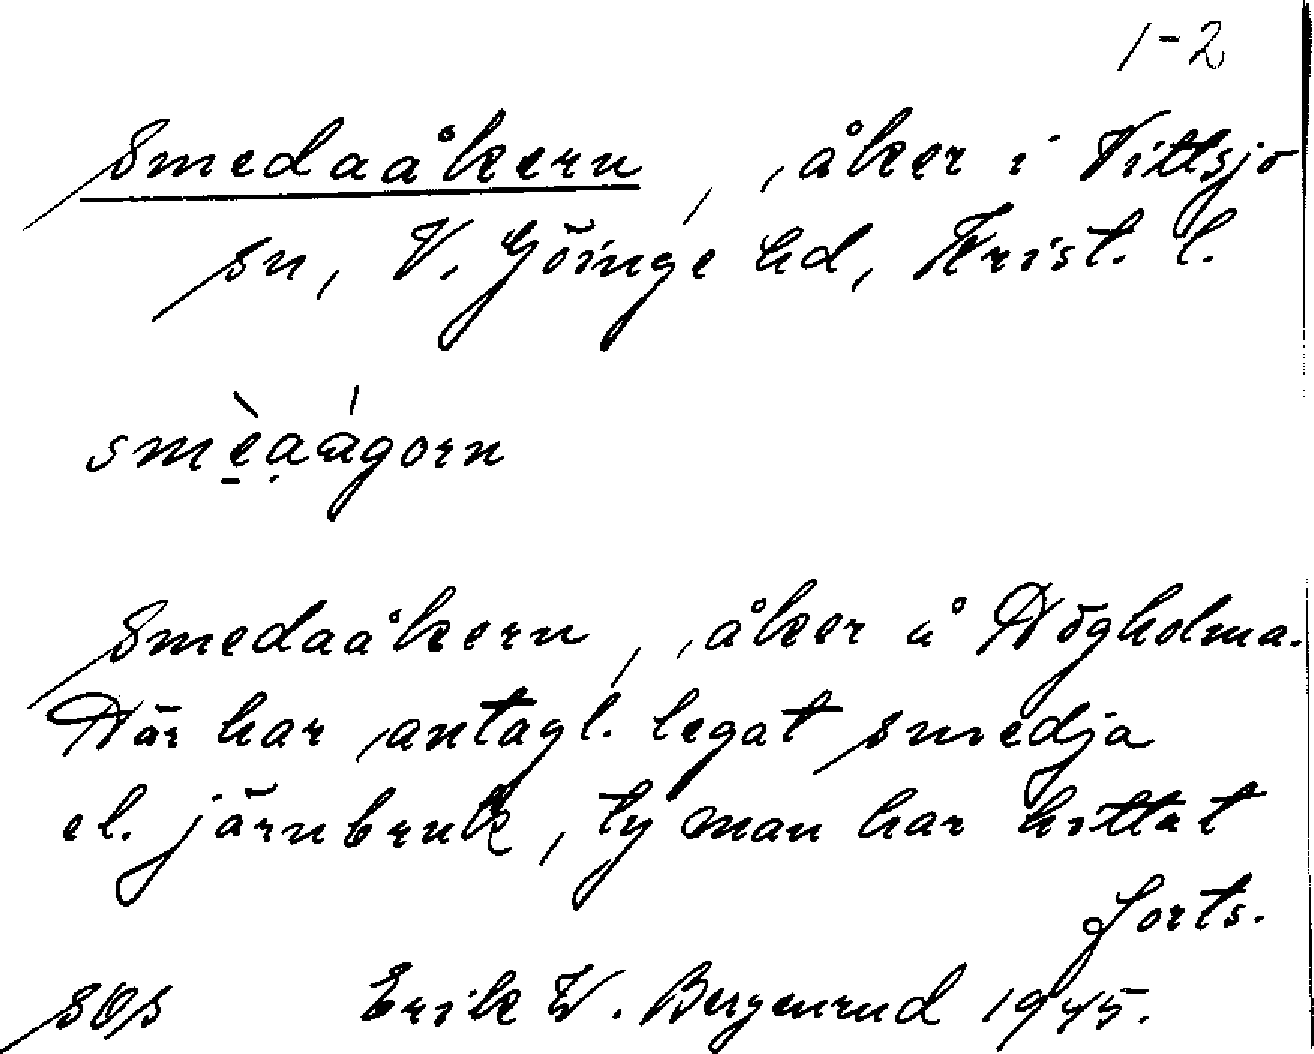 1-2
Smedaåkern, åker i Vittsjö
sn, V. Göinge hd, Krist. l.
smèaágorn
Smedaåkern, åker å Högholma.
Där har antagl. legat smedja
el. järnbruk, ty man har hittat
forts.
SOS Erik W. Bergenrud 1945.